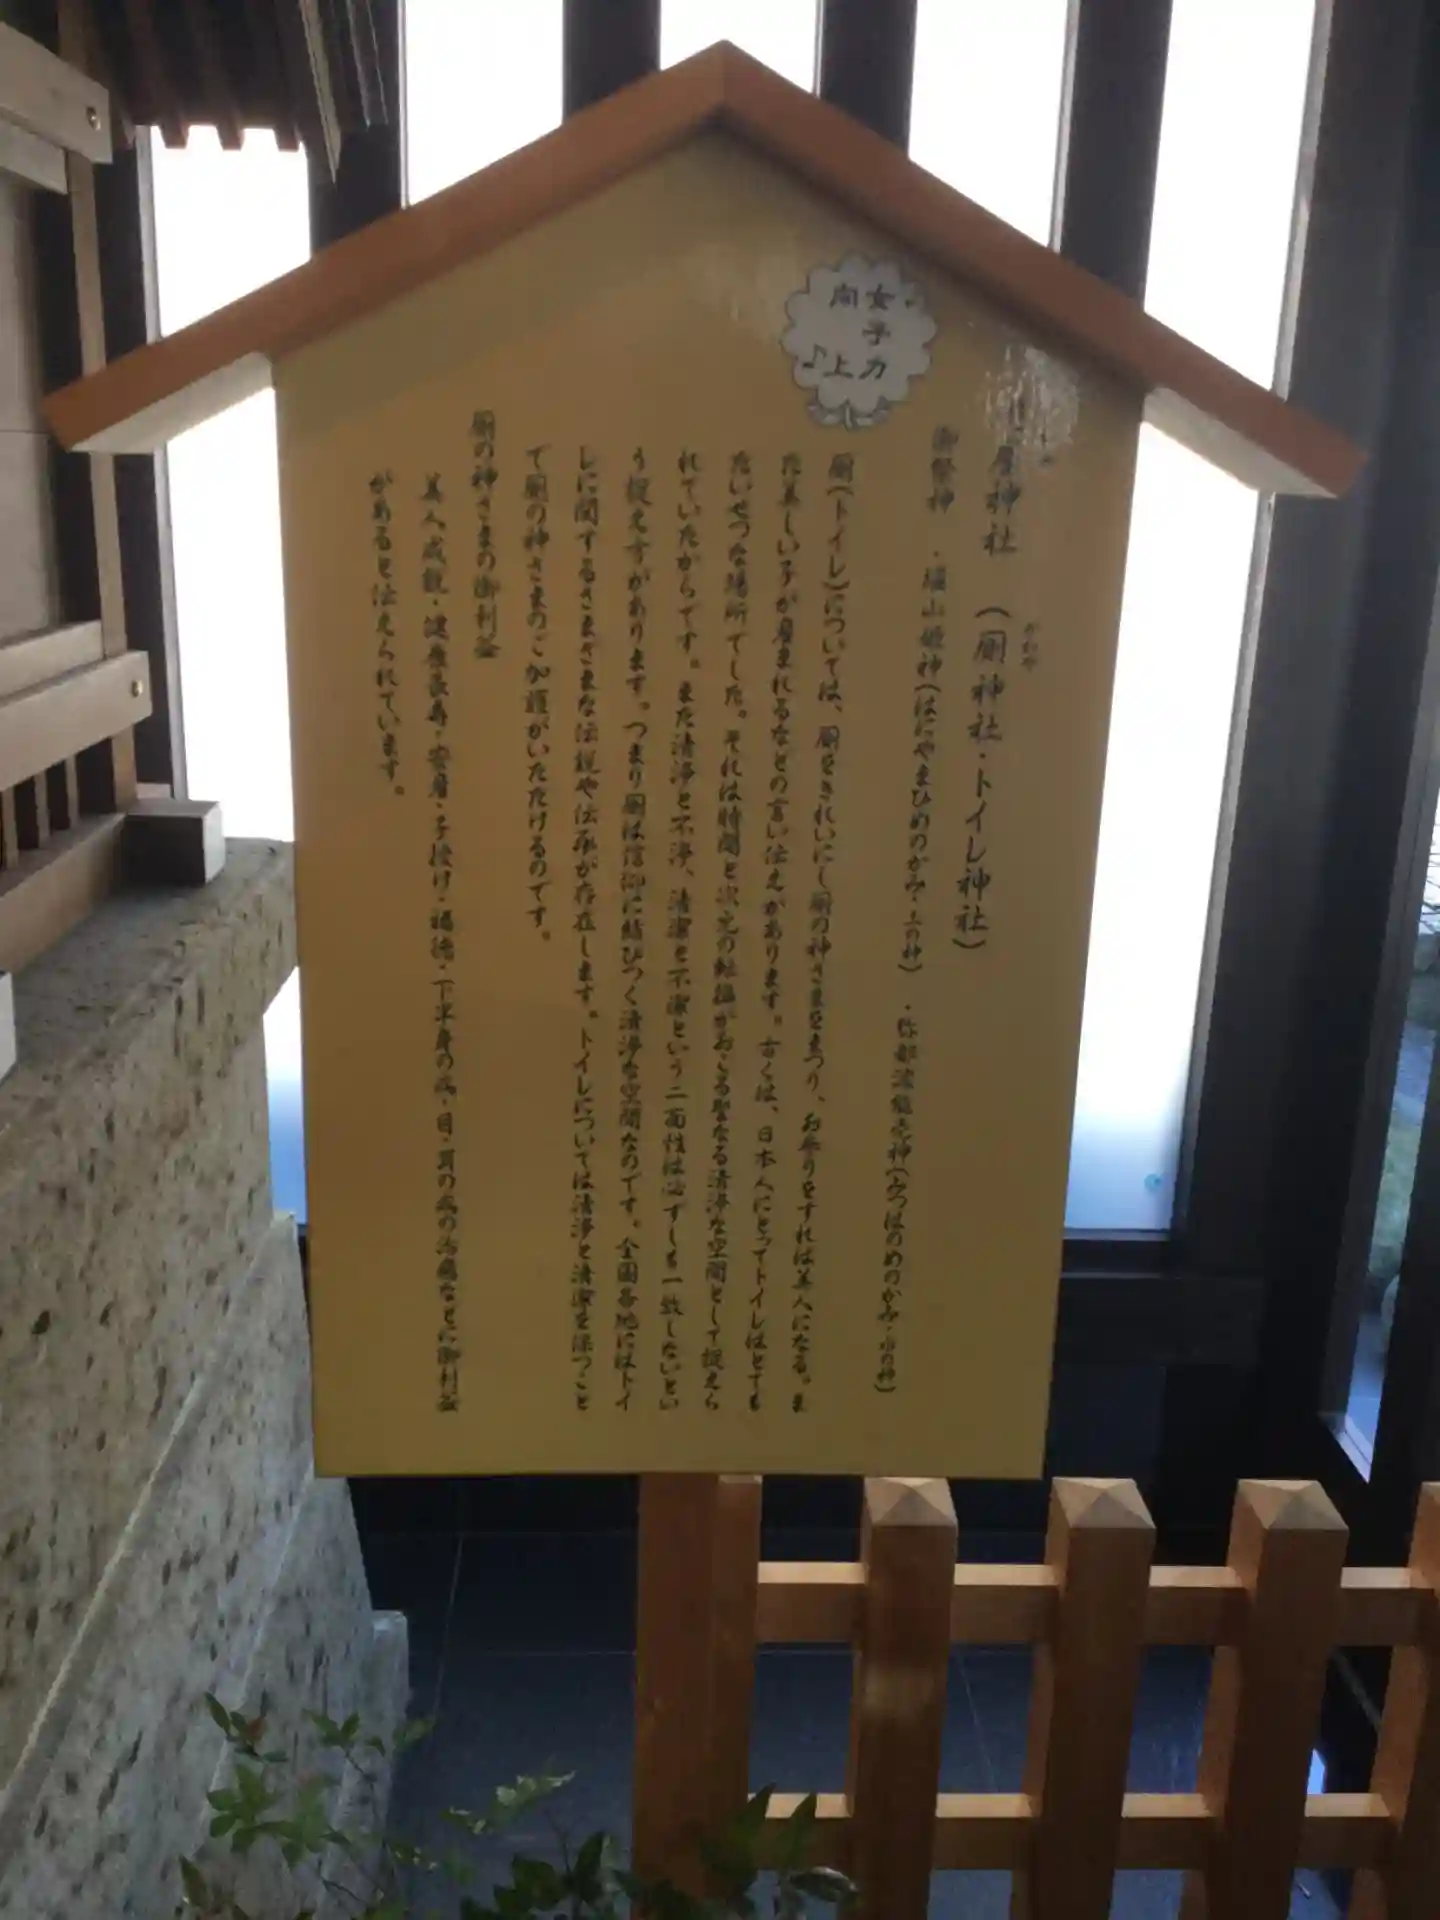 女子力
向上♪
屋神社 (厠神社・トイレ神社)
かわや
御祭神 ・埴山姫神(はにやまひめのかみ・土の神) ・弥都波能売神(みつはのめのかみ・水の神)
厠(トイレ)については、厠をきれいにし厠の神さまをまつり、お参りをすれば美人になる。ま
た美しい子が産まれるなどの言い伝えがあります。古くは、日本人にとってトイレはとても
たいせつな場所でした。それは時間と次元の転換がおこる聖なる清浄な空間として捉えら
れていたからです。また清浄と不浄、清潔と不潔という二面性は必ずしも一致しないとい
う捉え方があります。つまり厠は信仰に結びつく清浄な空間なのです。全国各地にはトイ
レに関するさまざまな伝説や伝承が存在します。トイレについては清浄と清潔を保つこと
で厠の神さまのご加護がいただけるのです。
厠の神さまの御利益
美人成就・健康長寿・安産・子授け・福徳・下半身の病・目・耳の病の治癒などに御利益
があると伝えられています。